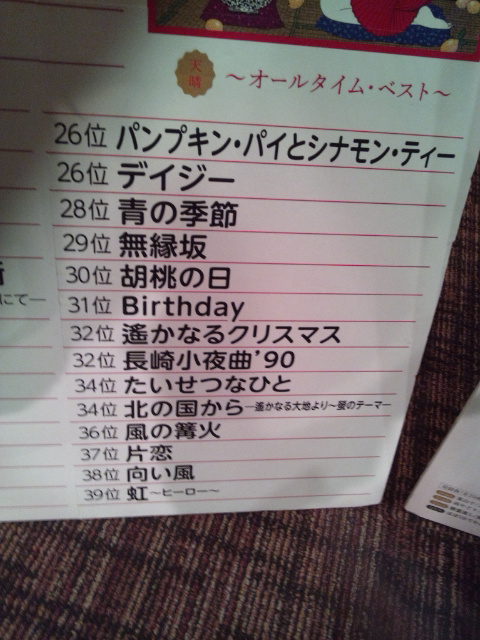 天晴
～オールタイム・ベスト～
26位 パンプキン・パイとシナモン・ティー
26位 デイジー
28位 青の季節
29位 無縁坂
30位 胡桃の日
にて―
31位 Birthday
32位 遙かなるクリスマス
32位 長崎小夜曲'90
34位 たいせつなひと
34位 北の国から―遙かなる大地より～螢のテーマ―
36位 風の篝火
37位 片恋
38位 向い風
39位 虹～ヒーロー～